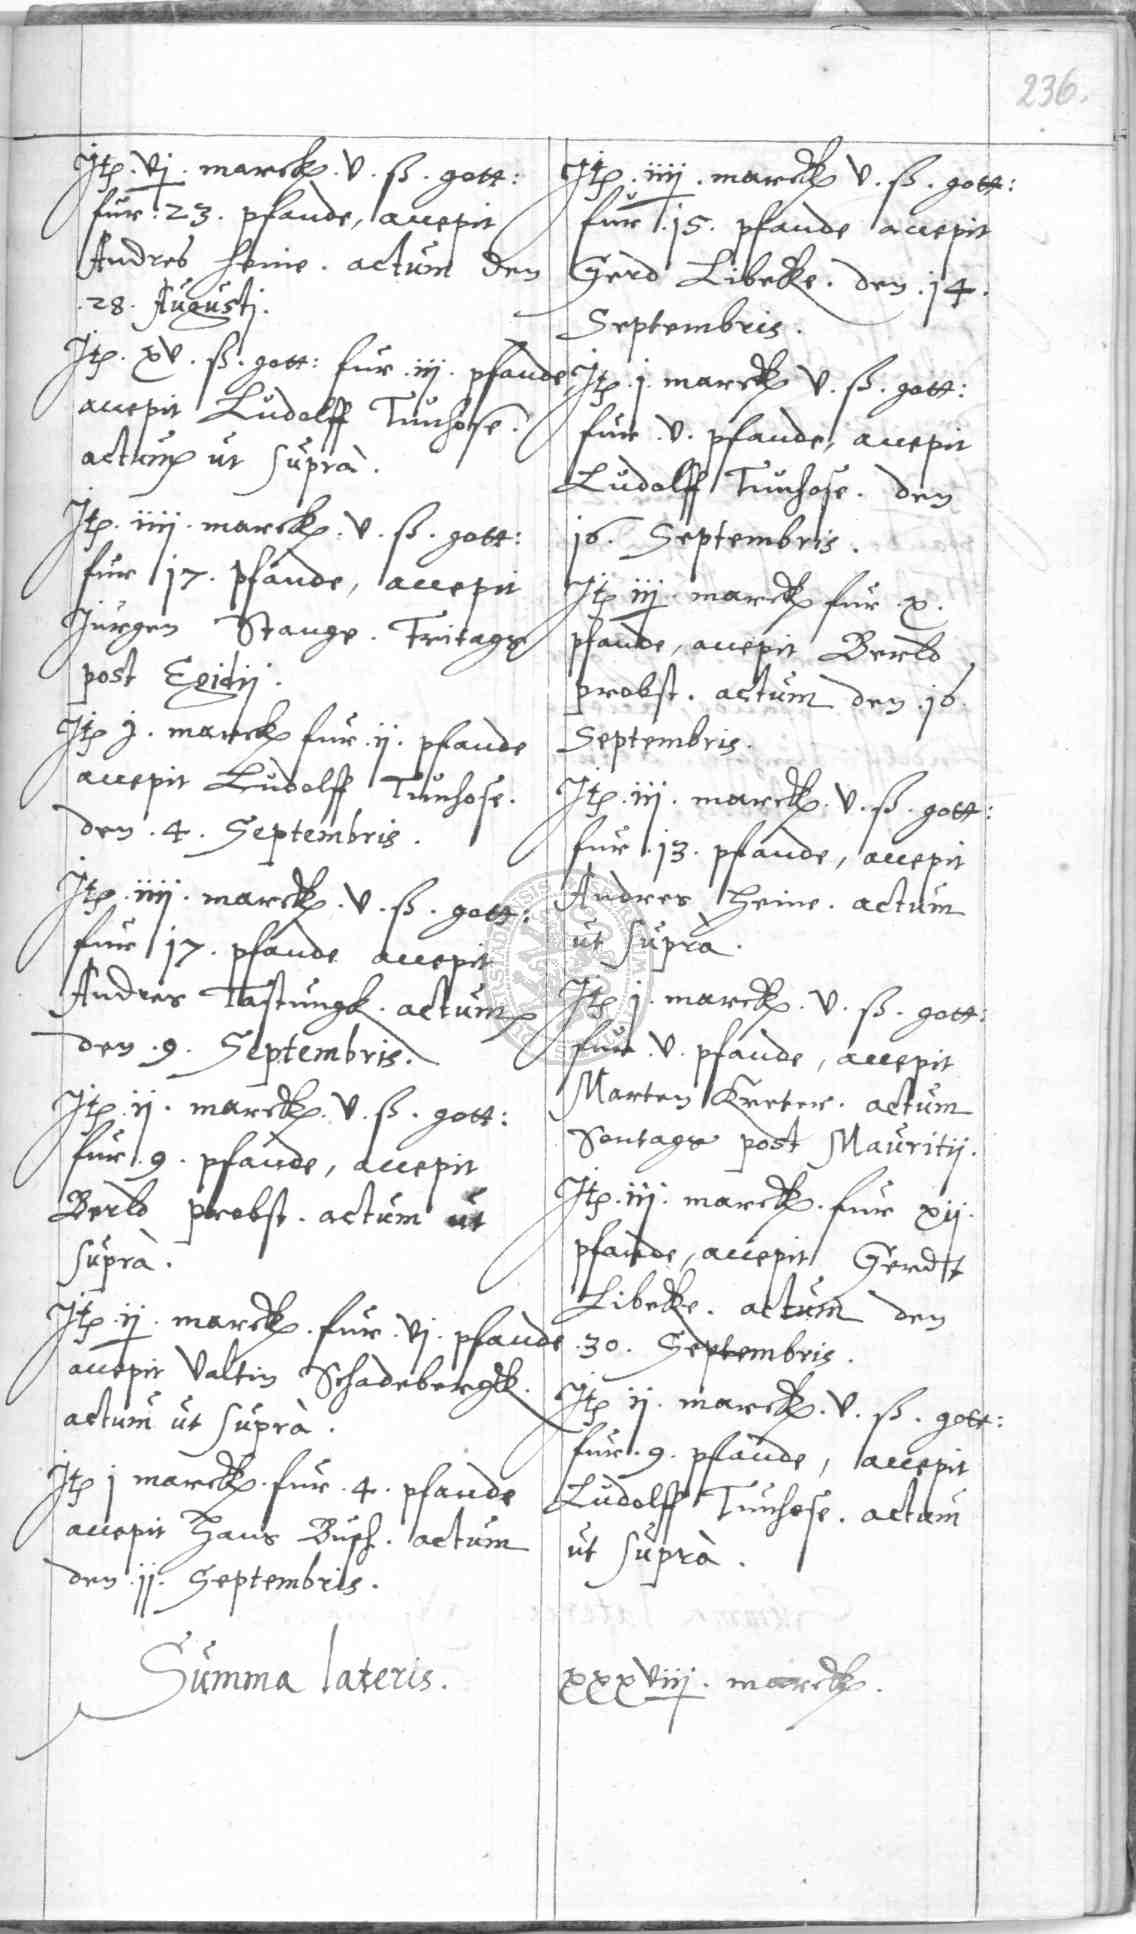 236.
Jtꝫ. vj. marck. v. ß. gott:
fur. 23. pfande, accepit
Andres Heine. actum den
.28. Augustj.
Jtꝫ. xv. ß. gott: fur .iij. pfande
accepit Ludolff Tunhose.
actum ut suprà.
Jtꝫ. iiij. marck. v. ß. gott:
fur 17. pfande, accepit
Jurgen Stange. Fritags
post Egidij.
Jtꝫ j. marck fur .ij. pfande
accepit Ludolff Tunhose.
den .4. Septembris.
Jtꝫ. iiij. marck. v. ß. gott:
fur 17. pfande accepit
Andres Tastungk. actum
den .9. Septembris.
Jtꝫ. ij. marck. v. ß. gott:
fur. 9. pfande, accepit
Berld probst. actum ut
suprà.
Jtꝫ. ij. marck. fur. vj. pfande
accepit Valtin Schadebergk.
actum ut suprà.
Jtꝫ j marck. fur .4. pfande
accepit Hans Busch. actum
den .11. Septembris.
Jtꝫ. iiij. marck v. ß. gott:
fur .15. pfande accepit
Gerd Libecke. den .14.
Septembris.
Jtꝫ. j. marck v. ß. gott:
fur .v. pfande, accepit
Ludolff Tunhose. den
16. Septembris.
Jtꝫ iij. marck fur .x.
pfande, accepit Berld
probst. actum den .16.
Septembris.
Jtꝫ. iij. marck. v. ß. gott:
fur .13. pfande, accepit
Andres Heine. actum
ut suprà.
Jtꝫ j. marck. v. ß. gott:
fur .v. pfande, accepit
Marten Kreter. actum
Sontags post Mauritij.
Jtꝫ. iij. marck. fur xij.
pfande, accepit Gerdt
Libecke. actum den
.30. Septembris.
Jtꝫ ij. marck. v. ß. gott:
fur. 9. pfande, accepit
Ludolff Tunhose. actum
ut suprà.
Summa lateris. xxxviiij. marck.